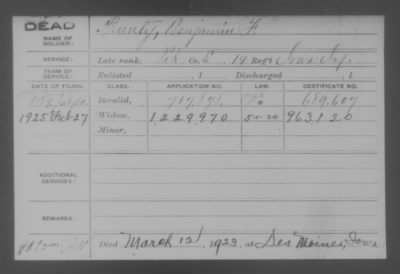 DEAD
NAME OF SOLDIER:
Prunty, Benjamin F.
SERVICE:
Late rank, Pvt Co. E, 14 Reg't Iowa Inf.
TERM OF SERVICE:
Enlisted , 1 Discharged , 1
DATE OF FILING. CLASS. APPLICATION NO. LAW. CERTIFICATE NO.
Invalid, 689,607
1925 Feb 27 Widow, 1229970 5-1-20 963120
Minor,
ADDITIONAL SERVICES:
REMARKS:
Died March 12, 1923, at Des Moines, Iowa